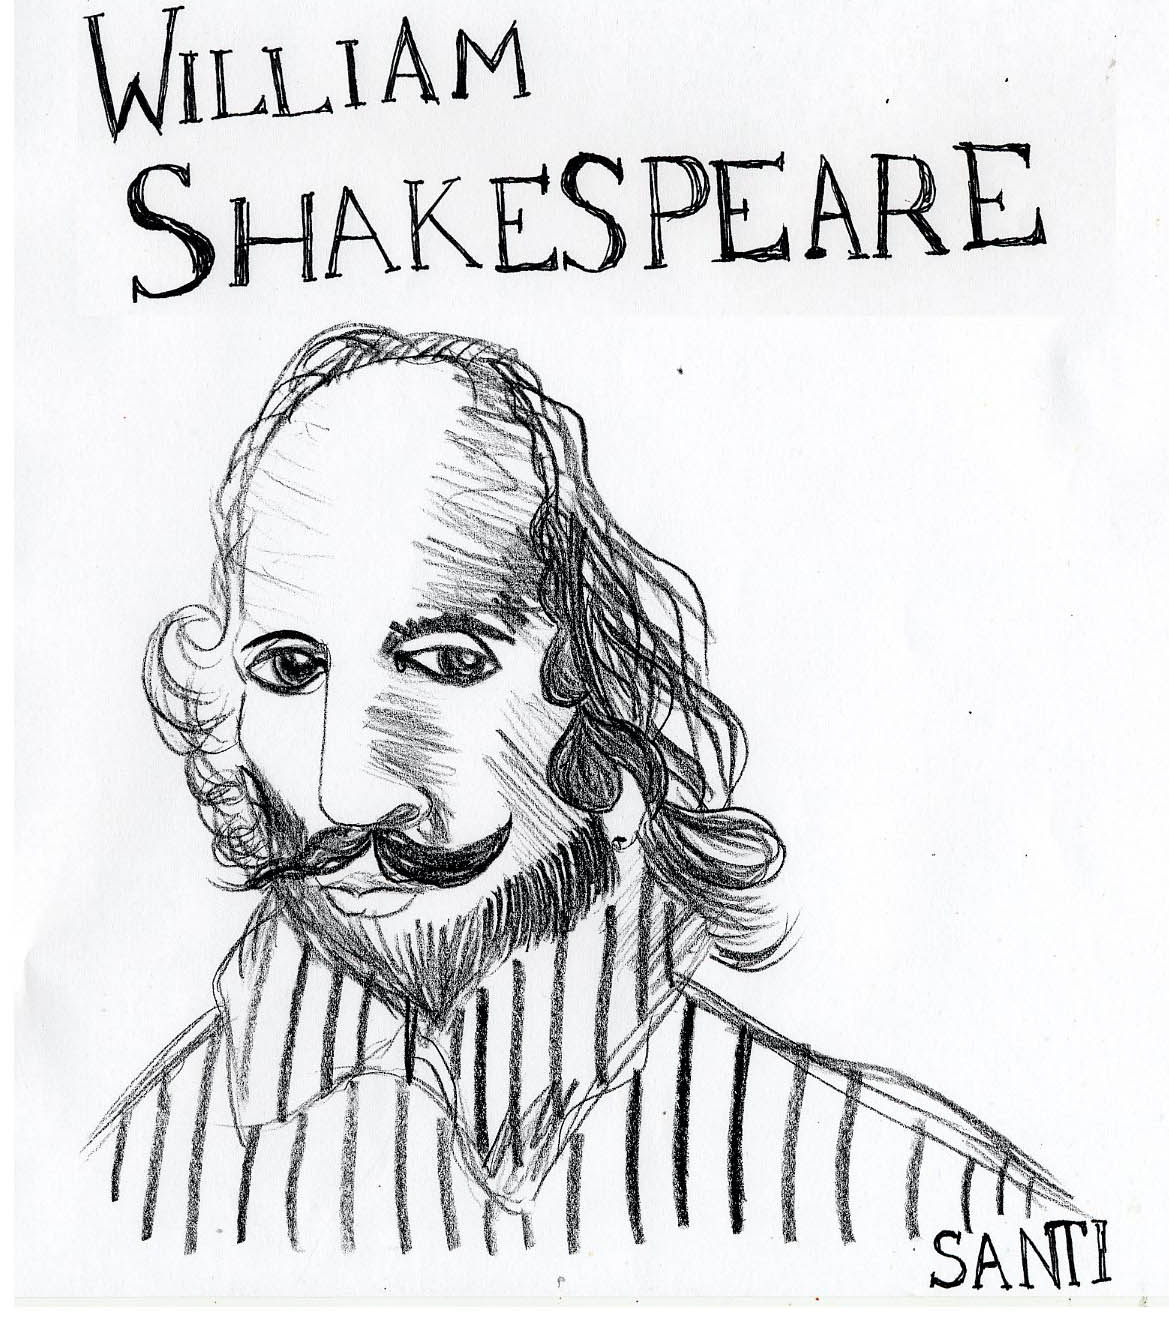 WILLIAM
SHAKESPEARE
SANTI